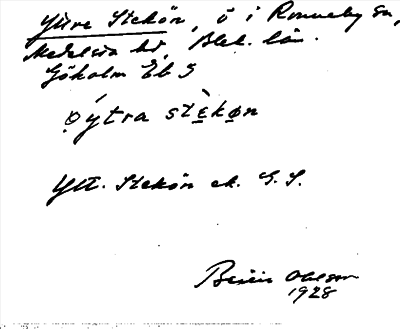 Yttre Stekön, ö i Ronneby sn,
Medelsta hd, Blek. län.
Göholm Eb 5
ý̀tra stè̱kø̱n
Ytt. Stekön ek. G. S.
Ohlson
1928